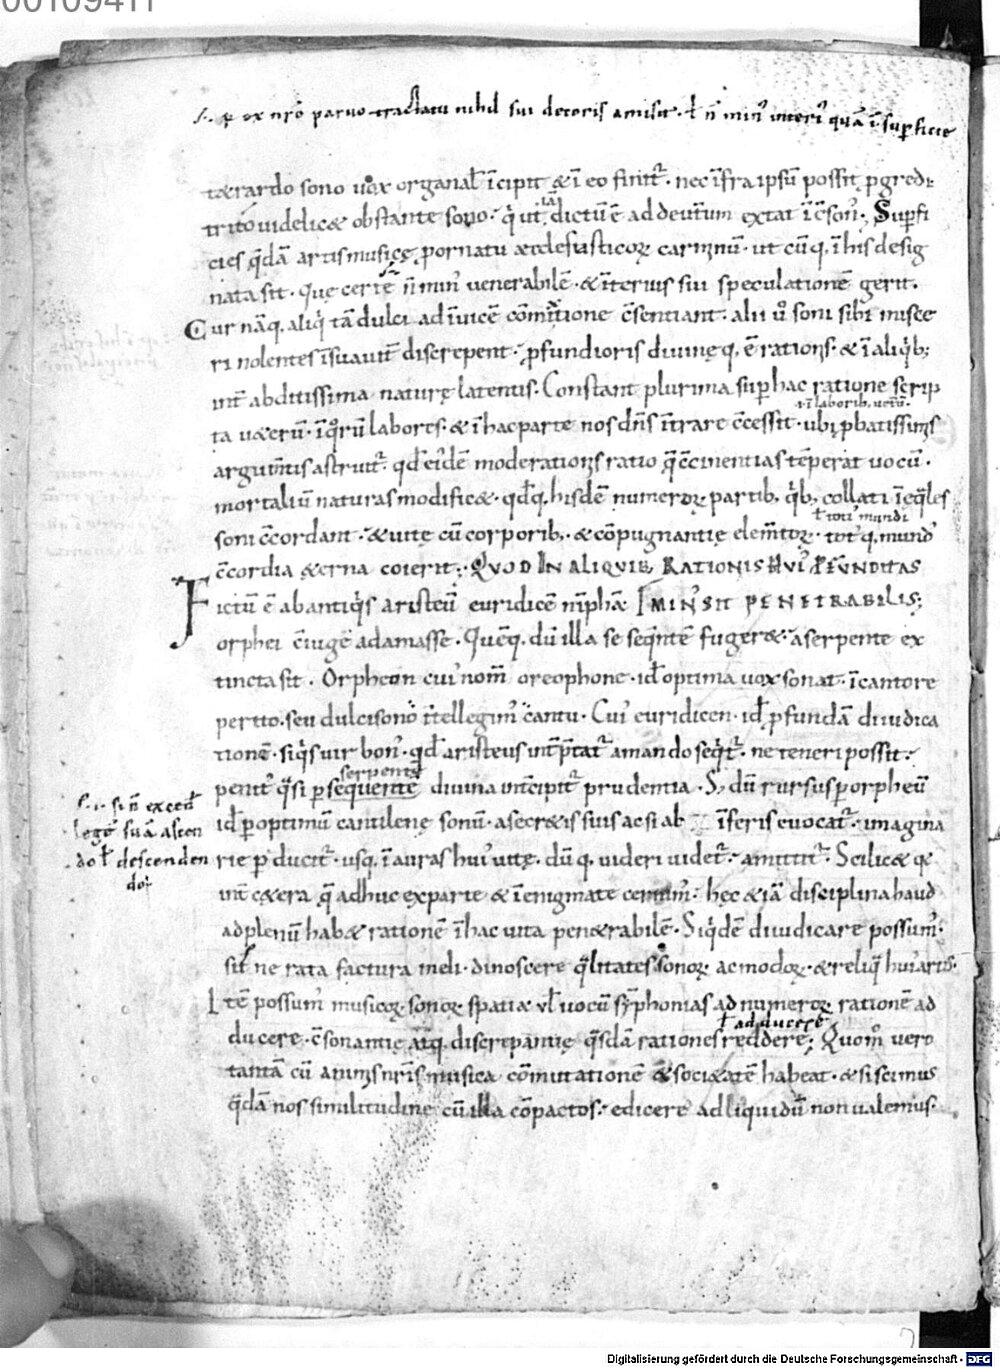 00109411
.i. ꝑ ex nr̄o paruo tractatu nihil sui decoris amisit. ł n̄ min᷒ interi᷒ quā ī supficie
tærardo sono uox organał īcipit & ī eo finit᷒. nec īfra ipsū possit pgredi
trito uidelicæ obstante sono. q̇ ut iā dictū ē ad deut̄um extat īc̄son᷒. Supfi
cies q̄dā artis musicę pornatu æcclesiasticoꝝ carminū. ut cūq, ī his desig
nata sit. Quę certe n̄ min᷒ uenerabilē. & īterius sui speculationē gerit.
Cur nāq, aliq̇ tā dulci ad īuicē cōmixtione c̄sentiant. alii u᷒o soni sibi misce
ri nolentes īsuauit̄ discrepent. pfundioris diuinęq, ē rationis. & ī aliq̇b;
int̄ abditissima naturę latentis. Constant plurima sup hac ratione scrip
ī laborib, uet̄ū.
ta uæerū. īq̇rū labores. & ī hac parte nos dn̄s ītrare c̄cessit. ubi pbatissimis
argum̄tis astruit᷒. qđ eidē moderationis ratio q̄ c̄cinentias tēperat uocū.
mortaliū naturas modificæ. qđq, hisdē numeroꝝ partib, q̇b, collati īeq̄les
ł toti᷒ mundi
soni c̄cordant. & uitę cū corporib, & cōpugnantię elem̄toꝝ. tot᷒q, mund᷒
c̄cordia æterna coierit; QVOD IN ALIQVIB, RATIONIS HVI᷒ PFVNDITAS
Fictū ē ab antiq̇s aristeū euridicē nīphā IMIN᷒ SIT PENETRABILIS;
orphei c̄iugē adamasse. Quēq, dū illa se seq̄ntē fugeræ. a serpente ex
tincta sit. Orpheon cui᷒ nom̄ oreophone. iđ optima uox sonat. ī cantore
perito. seu dulcisono ītellegim᷒ cantu. Cui᷒ euridicen. iđ pfundā diiudica
tionē. siq̇s uir bon᷒. qđ aristeus int̄ptat᷒ amando seq̇t᷒. ne teneri possit.
serpente
penit᷒ q̄si p sequente diuina int̄cipit᷒ prudentia. S; dū rursus p orpheū
iđ p optimū cantilenę sonū. a secretis suis ac si ab īferis euocat᷒. imagina
.i. si n̄ excen̄t
legē suā ascen
do ł descenden
do
rie pducit᷒. usq, ī auras hui᷒ uitę. dūq, uideri uidet᷒. amittit᷒. Scilicæ qa
int̄ cætera q̄ adhuc ex parte & ī enigmate cernim᷒. hec & iā disciplina haud
ad plenū habæ rationē ī hac uita penætrabilē. Siq̇dē diiudicare possum᷒.
sit ne rata factura meli. dinoscere q̄litates sonoꝝ ac modoꝝ. & reliq̄ hui᷒ artis.
Itē possum᷒ musicoꝝ sonoꝝ spatia uł uocū sȳphonias ad numeroꝝ rationē ad
ł adducere
ducere. c̄sonantię atq, discrepantię q̄sdā rationes reddere; Quom᷒ uero
tantā cū animis nr̄is musica cōmutationē & sociætatē habeat. & si scimus
q̄dā nos similitudine cū illa cōpactos. edicere ad liquidū non ualemus.
Digitalisierung gefördert durch die Deutsche Forschungsgemeinschaft - DFG